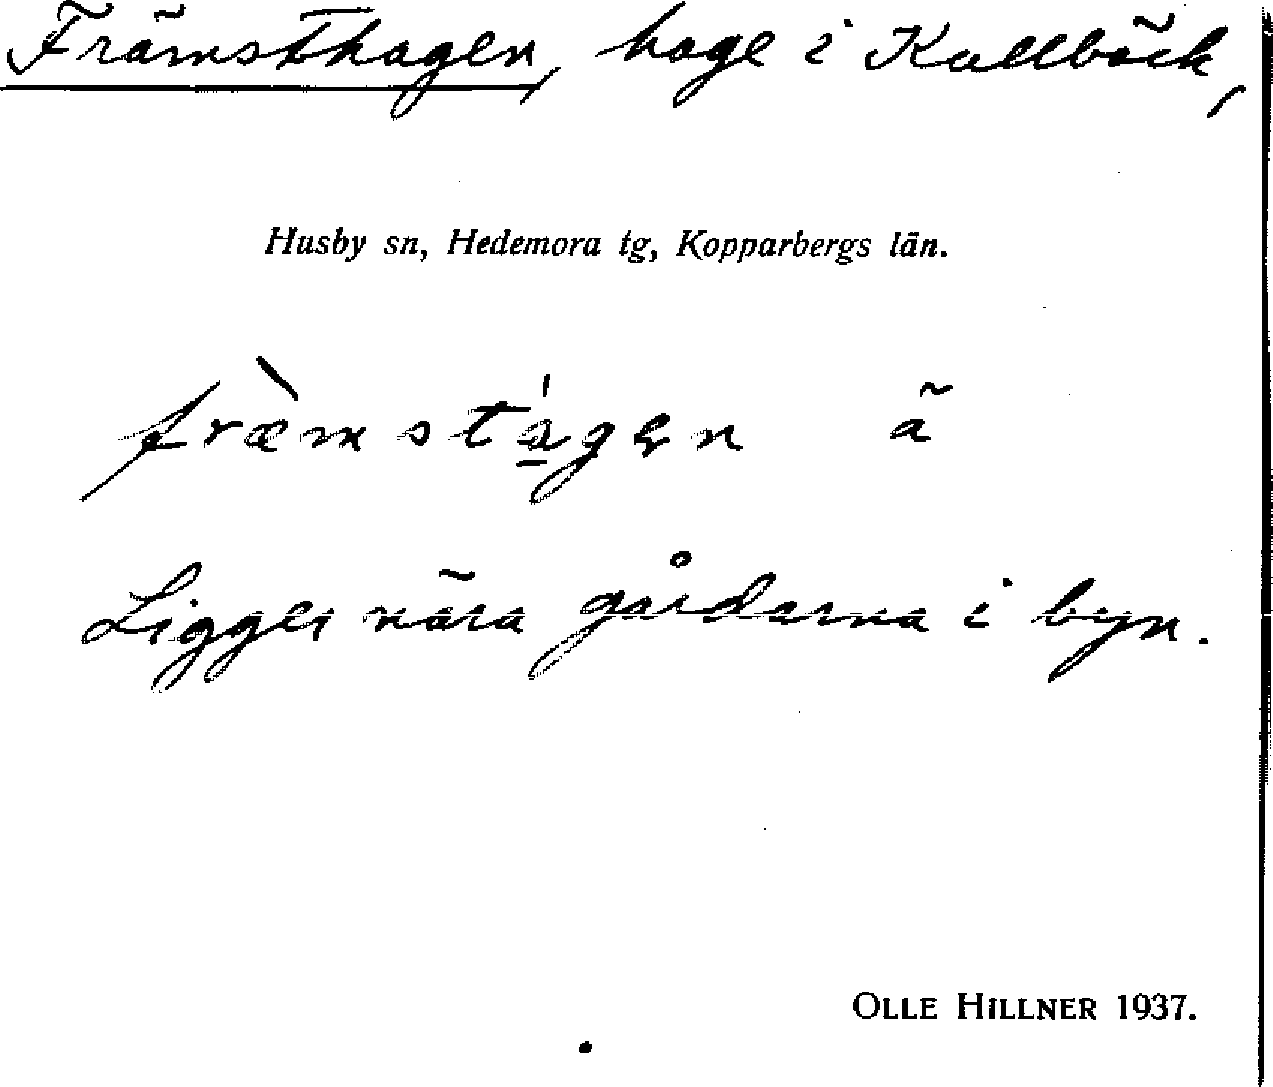 Främsthagen, hage i Kallbäck,
Husby sn, Hedemora tg, Kopparbergs län.
fræ̀mstá̲gen ä
Ligger nära gårdarna i byn.
OLLE HILLNER 1937.